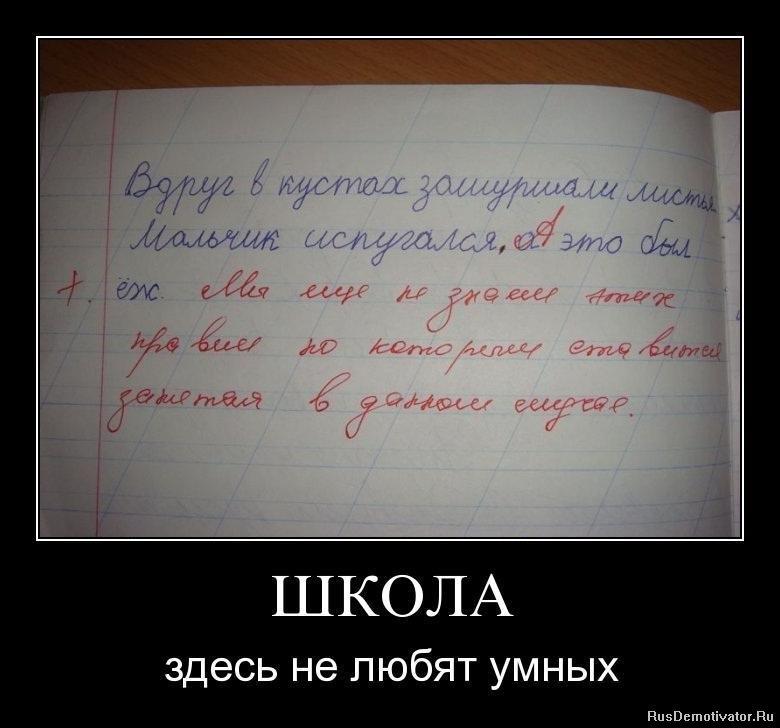 Вдруг в кустах зашуршали листья
Мальчик испугался, а А это был
+. ёж. Мы ещё не знаем этих
правил по которым ставится
запятая в данном случае.
ШКОЛА
здесь не любят умных
RusDemotivator.Ru